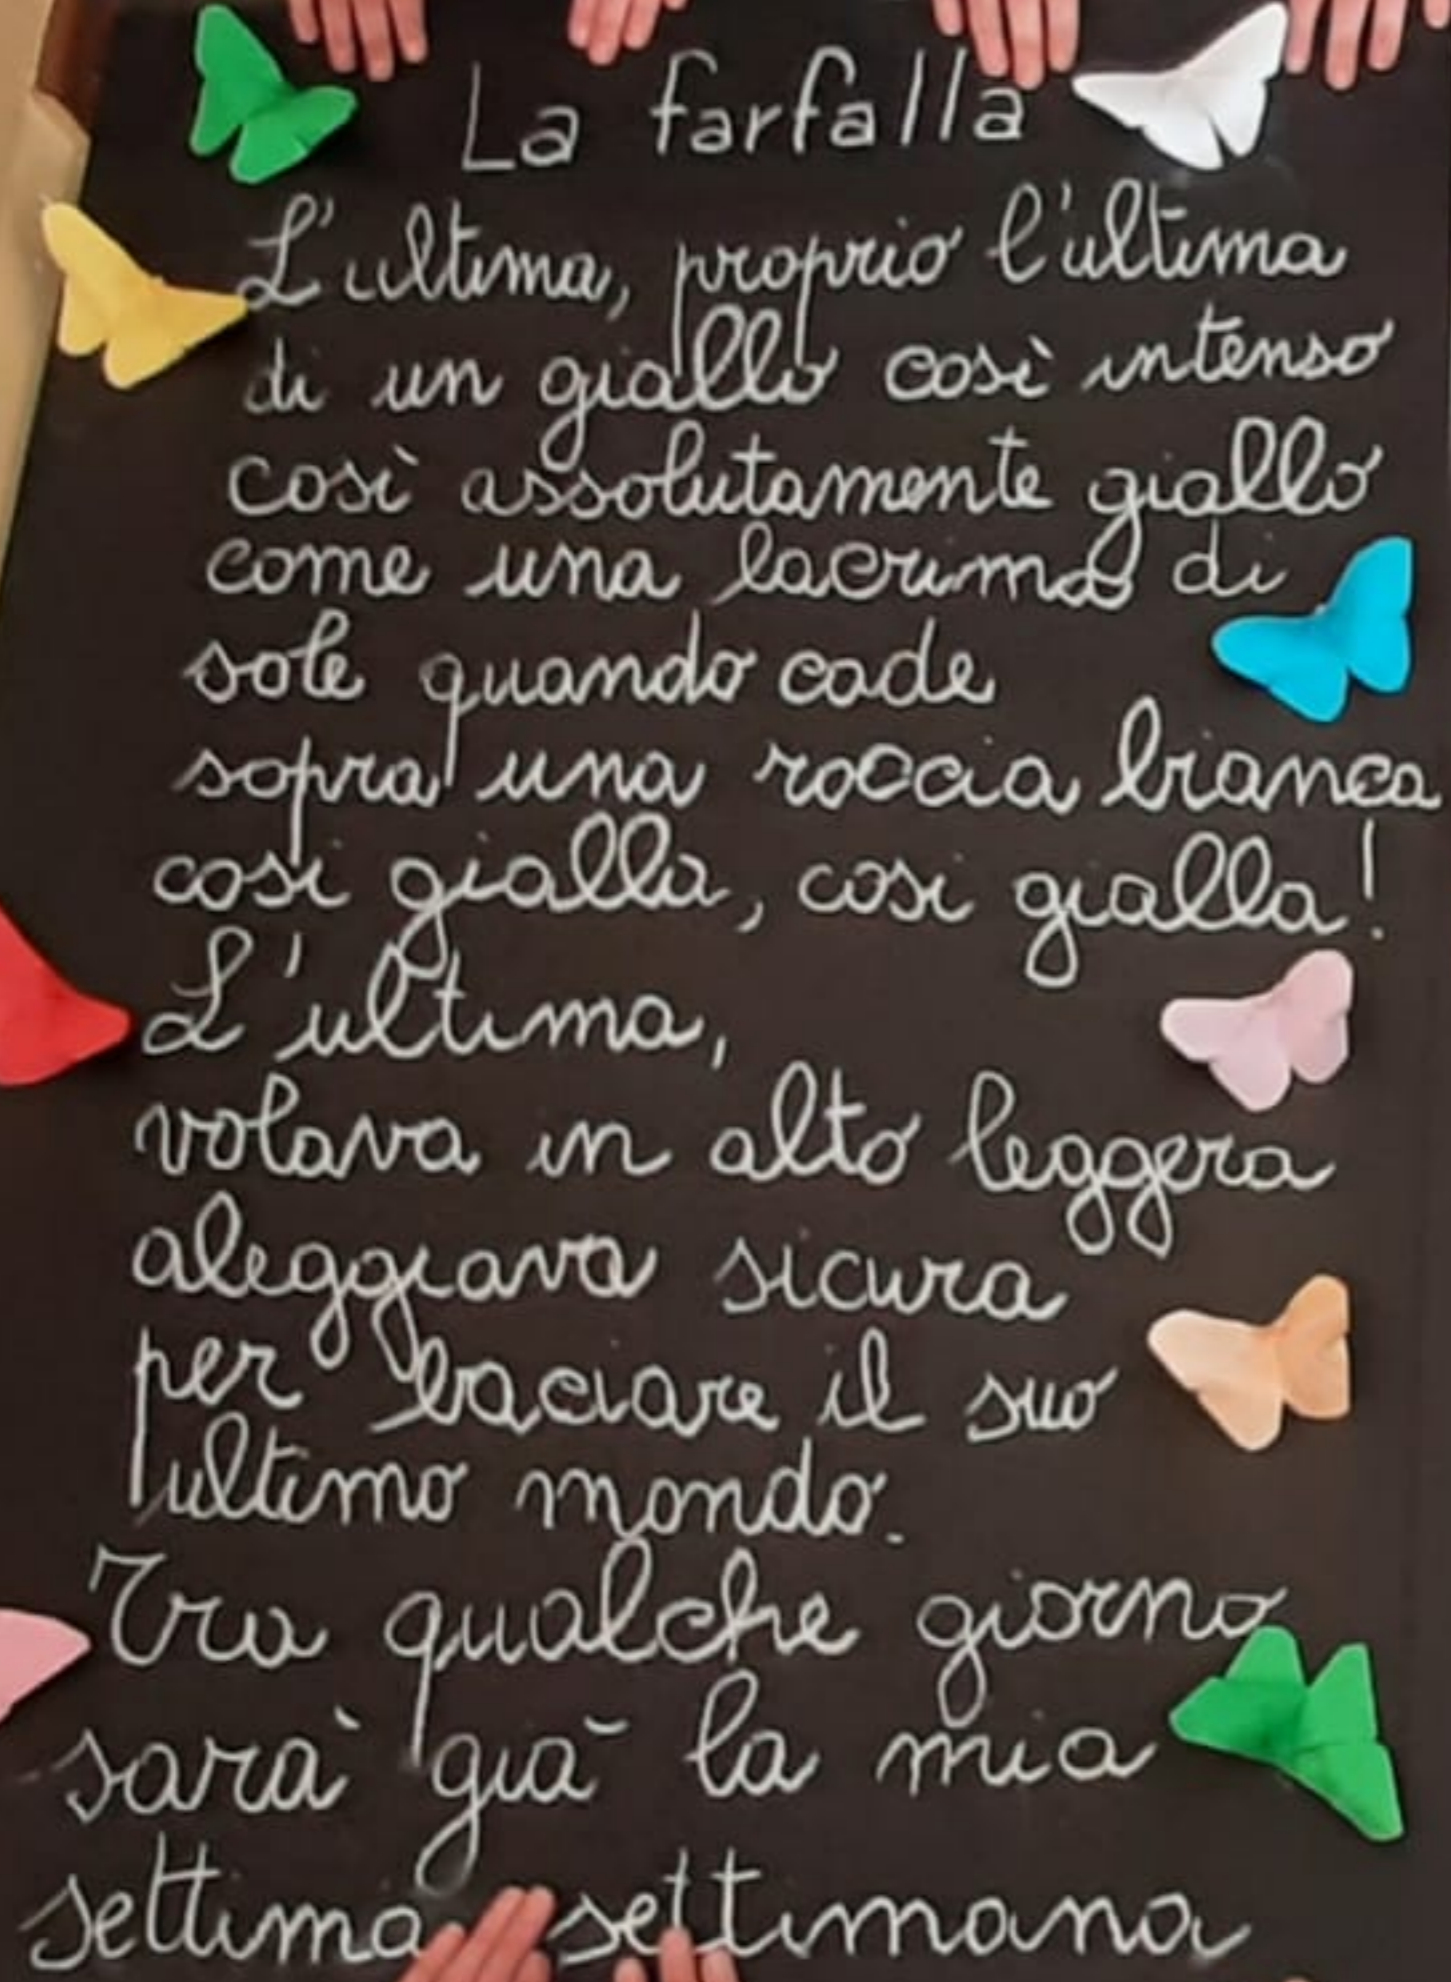 La farfalla
L'ultima, proprio l'ultima
di un giallo così intenso
così assolutamente giallo
come una lacrima di
sole quando cade
sopra una roccia bianca
cosi gialla, cosi gialla!
L'ultima,
volava in alto leggera
aleggiava sicura
per baciare il suo
ultimo mondo.
Tra qualche giorno
sarà già la mia
settima settimana